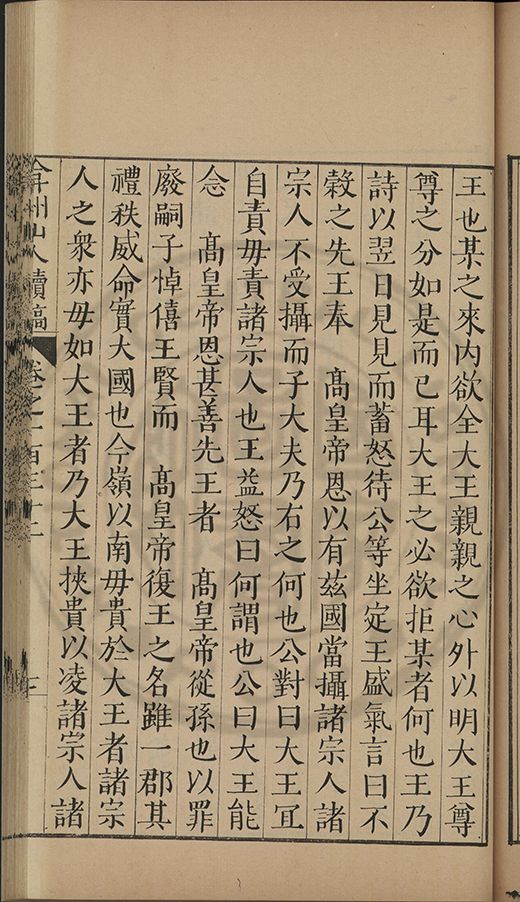 王也某之來内欲全大王親親之心外以明大王尊
尊之分如是而已耳大王之必欲拒某者何也王乃
詩以翌日見見而蓄怒待公等坐定王盛氣言曰不
穀之先王奉　髙皇帝恩以有兹國當攝諸宗人諸
宗人不受攝而子大夫乃右之何也公對曰大王冝
自責毋責諸宗人也王益怒曰何謂也公曰大王能
念　髙皇帝恩甚善先王者　髙皇帝從孫也以罪
廢嗣子悼僖王賢而　髙皇帝復王之名雖一郡其
禮秩威命實大國也今嶺以南毋貴於大王者諸宗
人之衆亦毋如大王者乃大王挾貴以凌諸宗人諸
弇州山人續稿
卷之一百三十二
三